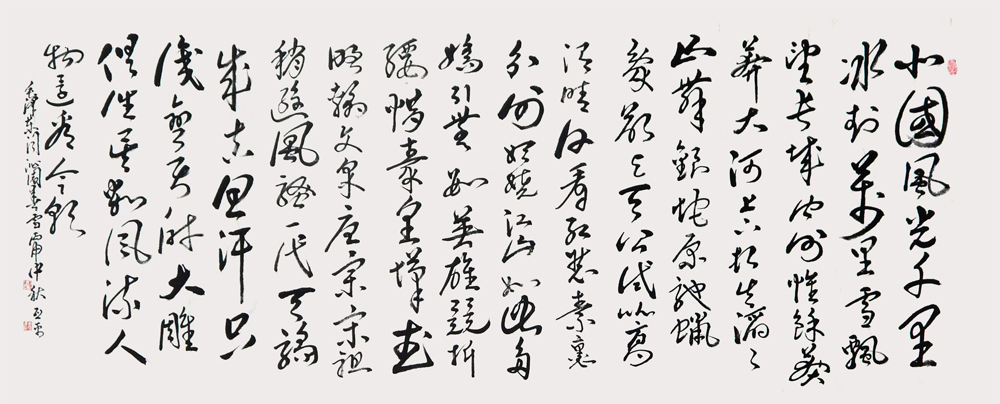 北國風光千里
冰封萬里雪飄
望長城內外惟餘莽
莽大河上下頓失滔〻
山舞銀蛇原馳蠟
象欲與天公試比高
須晴日看紅裝素裹
分外妖嬈江山如此多
嬌引無數英雄競折
腰惜秦皇漢武
略輸文采唐宗宋祖
稍遜風騷一代天驕
成吉思汗只
識彎弓射大雕
俱往矣數風流人
物還看今朝
毛澤東詞沁園春雪